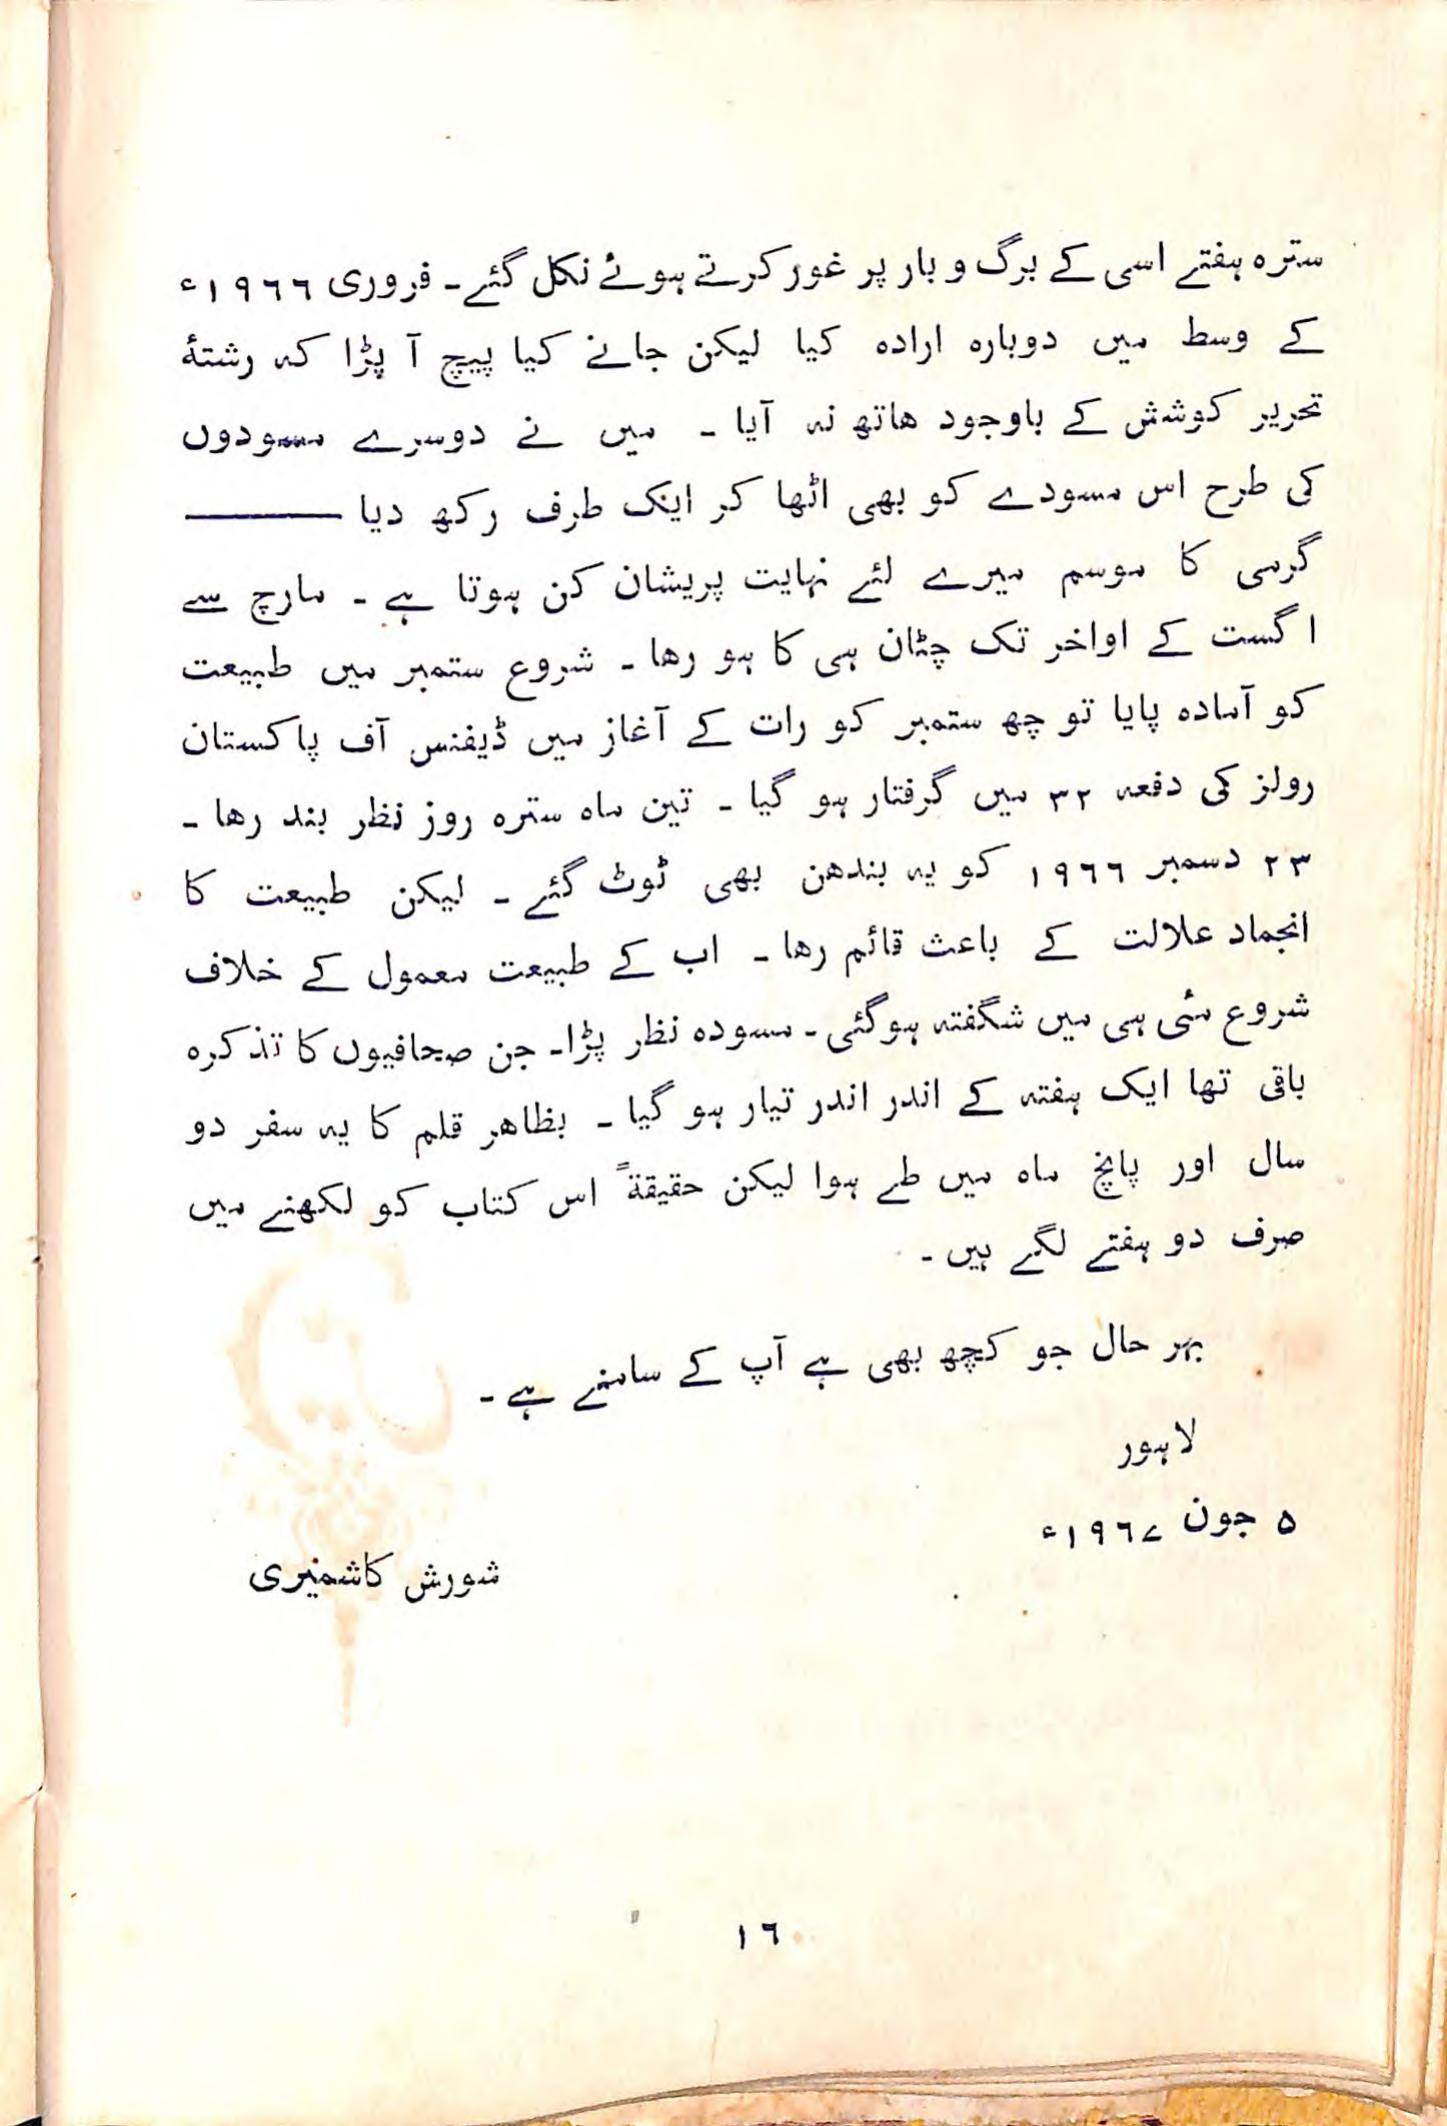 سترہ ہفتے اسی کے برگ و بار پر غور کرتے ہوئے نکل گئے۔ فروری ۱۹۶۶ء
کے وسط میں دوبارہ ارادہ کیا لیکن جانے کیا پیچ آ پڑا کہ رشتۂ
تحریر کوشش کے باوجود ھاتھ نہ آیا ۔ میں نے دوسرے مسودوں
کی طرح اس مسودے کو بھی اٹھا کر ایک طرف رکھ دیا ———
گرمی کا موسم میرے لئے نہایت پریشان کن ہوتا ہے ۔ مارچ سے
اگست کے اواخر تک چٹان ہی کا ہو رھا ۔ شروع ستمبر میں طبیعت
کو آمادہ پایا تو چھ ستمبر کو رات کے آغاز میں ڈیفنس آف پاکستان
رولز کی دفعہ ۳۲ میں گرفتار ہو گیا ۔ تین ماہ سترہ روز نظر بند رھا ۔
۲۳ دسمبر ۱۹۶۶ کو یہ بندھن بھی ٹوٹ گئے ۔ لیکن طبیعت کا
انجماد علالت کے باعث قائم رھا ۔ اب کے طبیعت معمول کے خلاف
شروع مئی ہی میں شگفتہ ہوگئی ۔ مسودہ نظر پڑا۔ جن صحافیوں کا تذکرہ
باقی تھا ایک ہفتہ کے اندر اندر تیار ہو گیا ۔ بظاھر قلم کا یہ سفر دو
سال اور پانچ ماہ میں طے ہوا لیکن حقیقۃً اس کتاب کو لکھنے میں
صرف دو ہفتے لگے ہیں ۔
بہر حال جو کچھ بھی ہے آپ کے سامنے ہے ۔
لاہور
۵ جون ۱۹۶۷ء
شورش کاشمیری
۱۶